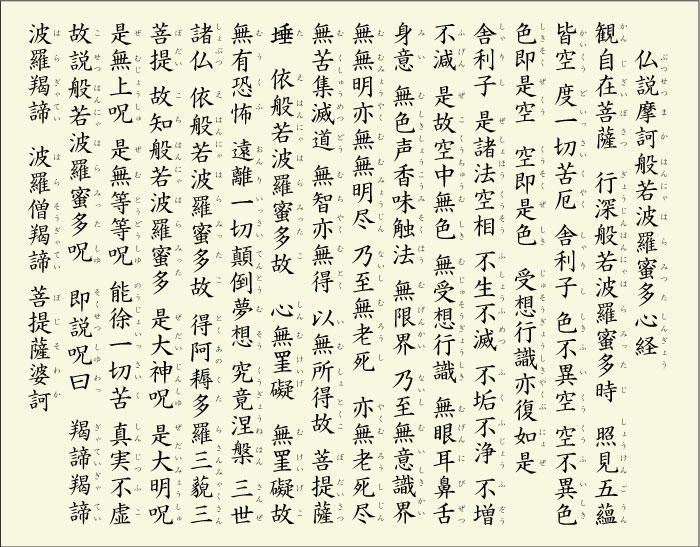 仏説摩訶般若波羅蜜多心経
観自在菩薩 行深般若波羅蜜多時 照見五蘊
皆空 度一切苦厄 舎利子 色不異空 空不異色
色即是空 空即是色 受想行識亦復如是
舎利子 是諸法空相 不生不滅 不垢不浄 不増
不減 是故空中無色 無受想行識 無眼耳鼻舌
身意 無色声香味触法 無限界 乃至無意識界
無無明亦無無明尽 乃至無老死 亦無老死尽
無苦集滅道 無智亦無得 以無所得故 菩提薩
埵 依般若波羅蜜多故 心無罣礙 無罣礙故
無有恐怖 遠離一切顛倒夢想 究竟涅槃 三世
諸仏 依般若波羅蜜多故 得阿耨多羅三藐三
菩提 故知般若波羅蜜多 是大神呪 是大明呪
是無上呪 是無等等呪 能徐一切苦 真実不虚
故説般若波羅蜜多呪 即説呪曰 羯諦羯諦
波羅羯諦 波羅僧羯諦 菩提薩婆訶